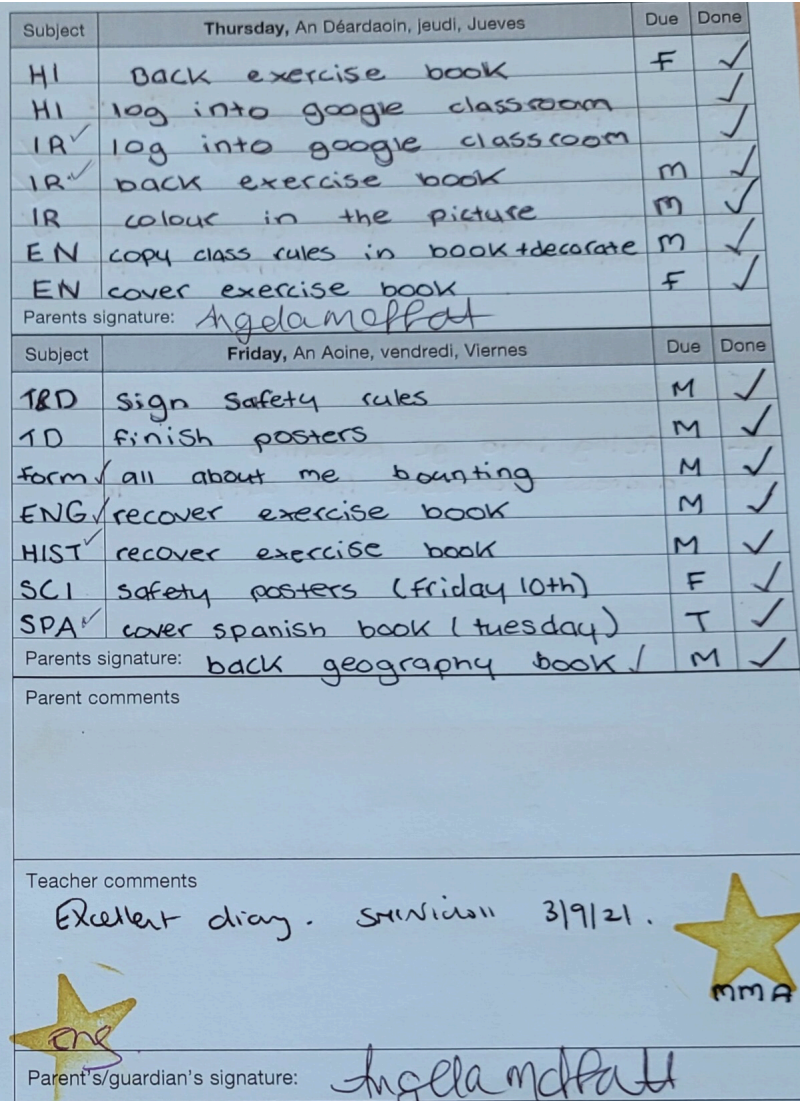 Subject Thursday, An Déardaoin, jeudi, Jueves Due Done
HI Back exercise book F ✓
HI log into google classroom ✓
IR ✓ log into google classroom ✓
IR ✓ back exercise book m ✓
IR colour in the picture m ✓
EN copy class rules in book + decorate m ✓
EN cover exercise book F ✓
Parents signature: Angela Moffatt
Subject Friday, An Aoine, vendredi, Viernes Due Done
T&D Sign Safety rules M ✓
TD finish posters M ✓
form ✓ all about me bounting M ✓
ENG ✓ recover exercise book M ✓
HIST ✓ recover exercise book M ✓
SCI safety posters (friday 10th) F ✓
SPA ✓ cover spanish book (tuesday) T ✓
Parents signature: back geography book ✓ M ✓
Parent comments
Teacher comments
Excellent diary. 3/9/21.
MMA
eng
Parent's/guardian's signature: Angela Moffatt